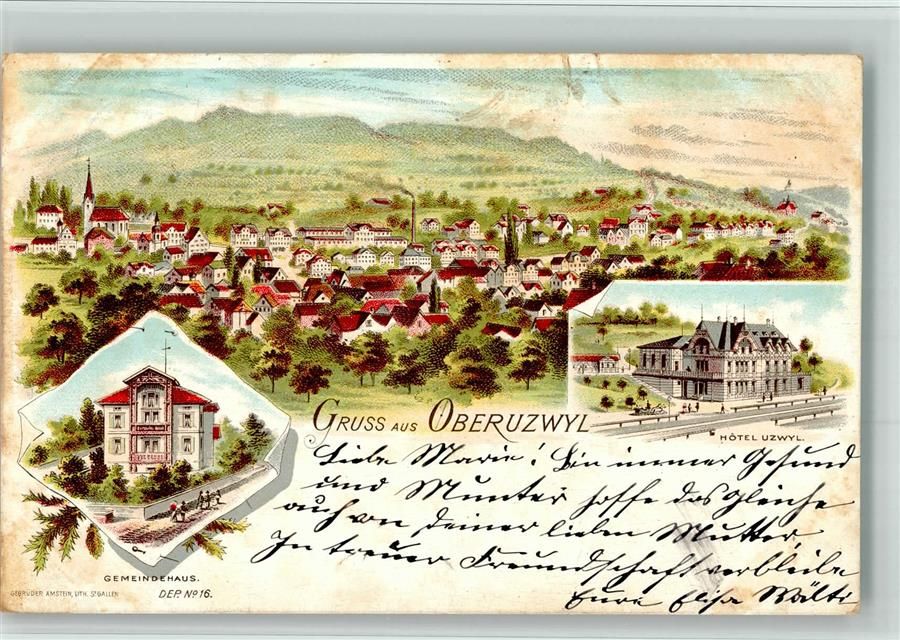 GRUSS AUS OBERUZWYL
HÔTEL UZWYL.
Liebe Marie! Bin immer Gesund
und Munter hoffe das gleiche
auch von deiner lieben Mutter,
In treuer Freundschaft verbleibe
Eure Elisa Wälti
GEMEINDEHAUS.
GEBRÜDER AMSTEIN, LITH. ST. GALLEN
DEP. No 16.